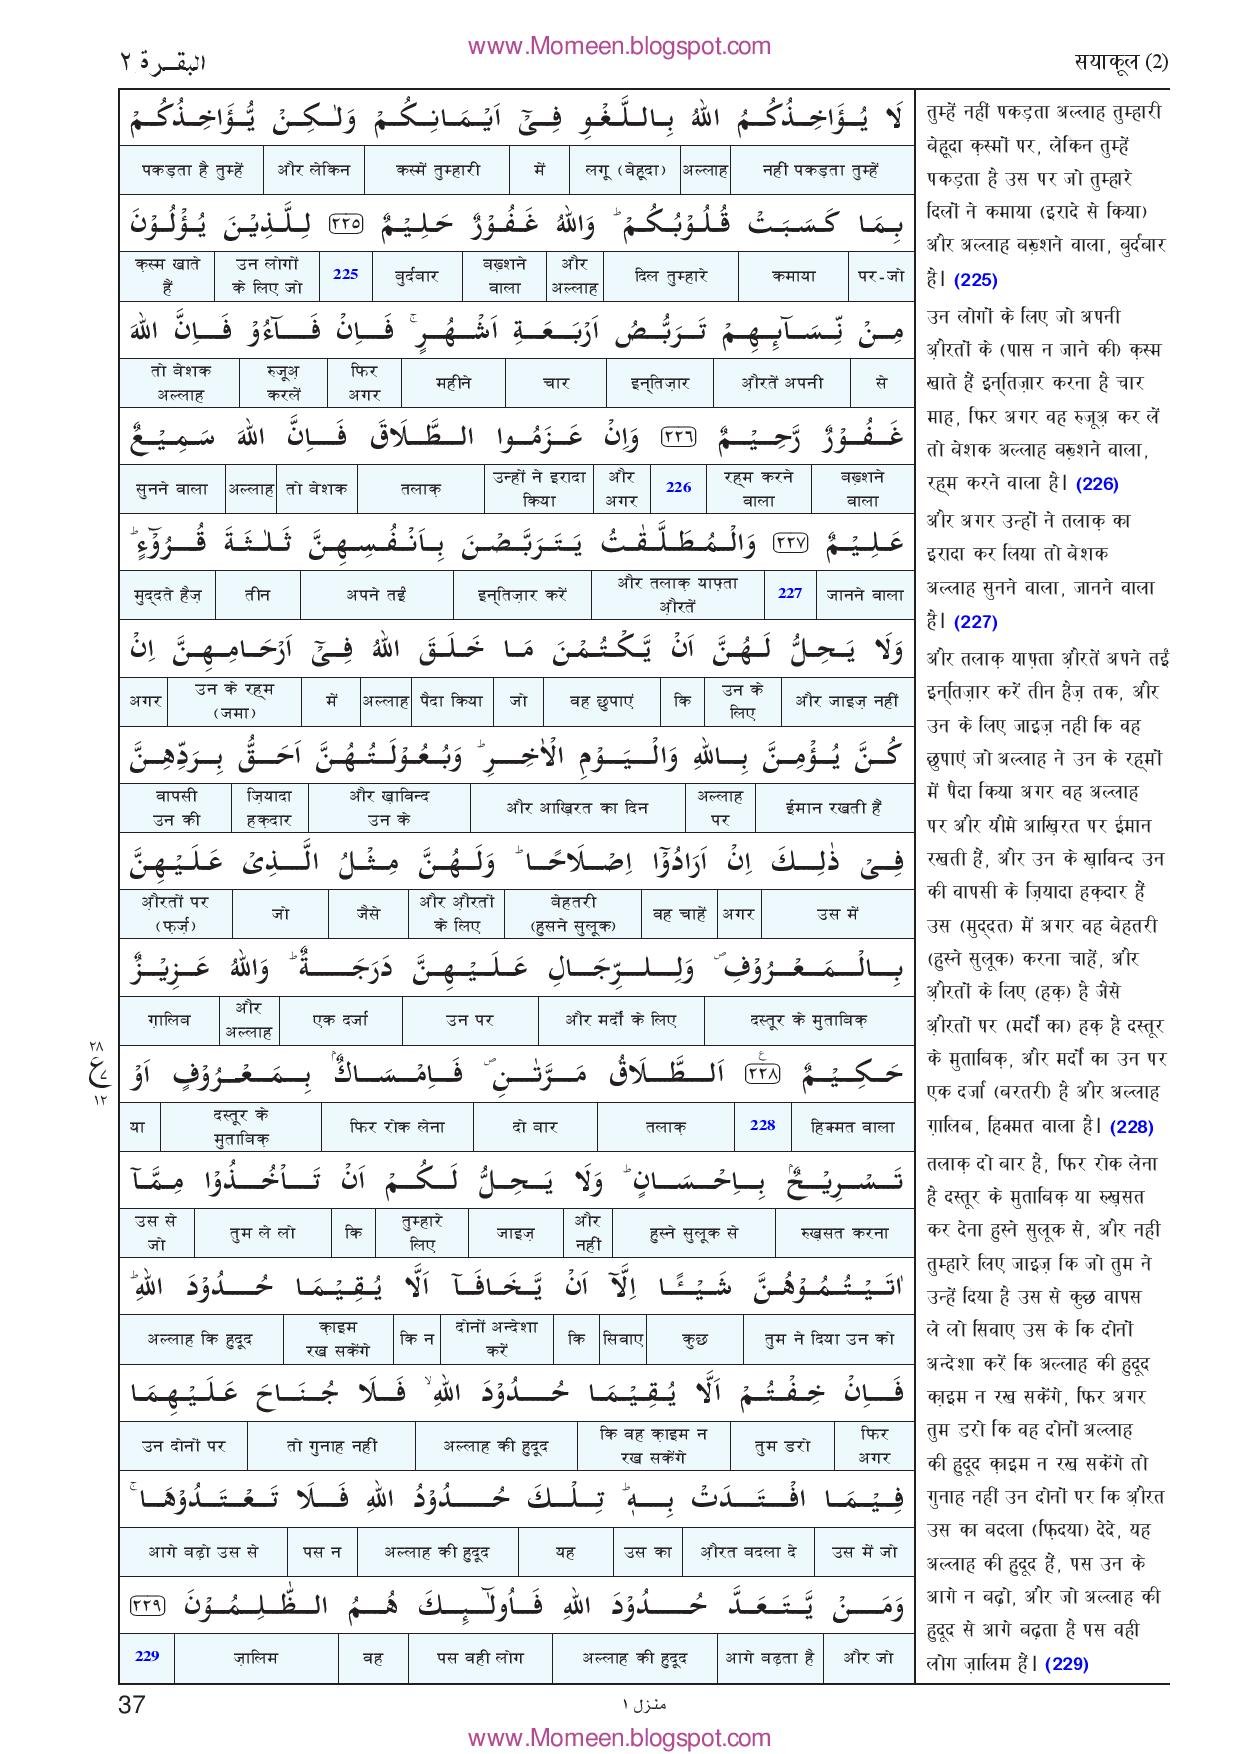 www.Momeen.blogspot.com
البقرة ٢
सयाकूल (2)
لَا يُؤَاخِذُكُمُ اللّٰهُ بِاللَّغْوِ فِىْٓ اَيْمَانِكُمْ وَلٰكِنْ يُّؤَاخِذُكُمْ
नहीं पकड़ता तुम्हें | अल्लाह | लगू (बेहूदा) | में | कस्में तुम्हारी | और लेकिन | पकड़ता है तुम्हें
بِمَا كَسَبَتْ قُلُوْبُكُمْ ؕ وَاللّٰهُ غَفُوْرٌ حَلِيْمٌ ﴿٢٢٥﴾ لِلَّذِيْنَ يُؤْلُوْنَ
पर-जो | कमाया | दिल तुम्हारे | और अल्लाह | बख़्शने वाला | बुर्दबार | 225 | उन लोगों के लिए जो | क़स्म खाते हैं
مِنْ نِّسَآىِٕهِمْ تَرَبُّصُ اَرْبَعَةِ اَشْهُرٍ ۚ فَاِنْ فَآءُوْ فَاِنَّ اللّٰهَ
से | औ़रतें अपनी | इन्तिज़ार | चार | महीने | फिर अगर | रुजूअ़ करलें | तो बेशक अल्लाह
غَفُوْرٌ رَّحِيْمٌ ﴿٢٢٦﴾ وَاِنْ عَزَمُوا الطَّلَاقَ فَاِنَّ اللّٰهَ سَمِيْعٌ
बख़्शने वाला | रहम करने वाला | 226 | और अगर | उन्हों ने इरादा किया | तलाक़ | तो बेशक | अल्लाह | सुनने वाला
عَلِيْمٌ ﴿٢٢٧﴾ وَالْمُطَلَّقٰتُ يَتَرَبَّصْنَ بِاَنْفُسِهِنَّ ثَلٰثَةَ قُرُوْٓءٍ ؕ
जानने वाला | 227 | और तलाक़ याफ़्ता औ़रतें | इन्तिज़ार करें | अपने तईं | तीन | मुद्दते हैज़
وَلَا يَحِلُّ لَهُنَّ اَنْ يَّكْتُمْنَ مَا خَلَقَ اللّٰهُ فِىْٓ اَرْحَامِهِنَّ اِنْ
और जाइज़ नहीं | उन के लिए | कि | वह छुपाएं | जो | पैदा किया | अल्लाह | में | उन के रहम (जमा) | अगर
كُنَّ يُؤْمِنَّ بِاللّٰهِ وَالْيَوْمِ الْاٰخِرِ ؕ وَبُعُوْلَتُهُنَّ اَحَقُّ بِرَدِّهِنَّ
ईमान रखती हैं | अल्लाह पर | और आख़िरत का दिन | और ख़ाविन्द उन के | ज़ियादा हक़दार | वापसी उन की
فِىْ ذٰلِكَ اِنْ اَرَادُوْٓا اِصْلَاحًا ؕ وَلَهُنَّ مِثْلُ الَّذِىْ عَلَيْهِنَّ
उस में | अगर | वह चाहें | बेहतरी (हुसने सुलूक) | और औ़रतों के लिए | जैसे | जो | औ़रतों पर (फ़र्ज़)
بِالْمَعْرُوْفِ ۪ وَلِلرِّجَالِ عَلَيْهِنَّ دَرَجَةٌ ؕ وَاللّٰهُ عَزِيْزٌ
दस्तूर के मुताबिक़ | और मर्दों के लिए | उन पर | एक दर्जा | और अल्लाह | ग़ालिब
٢٨
ع
٧
١٢
حَكِيْمٌ ﴿٢٢٨﴾ اَلطَّلَاقُ مَرَّتٰنِ ۪ فَاِمْسَاكٌۢ بِمَعْرُوْفٍ اَوْ
हिक्मत वाला | 228 | तलाक़ | दो बार | फिर रोक लेना | दस्तूर के मुताबिक़ | या
تَسْرِيْحٌۢ بِاِحْسَانٍ ؕ وَلَا يَحِلُّ لَكُمْ اَنْ تَاْخُذُوْا مِمَّآ
रुख़सत करना | हुस्ने सुलूक से | और नहीं | जाइज़ | तुम्हारे लिए | कि | तुम ले लो | उस से जो
اٰتَيْتُمُوْهُنَّ شَيْـًٔا اِلَّآ اَنْ يَّخَافَآ اَلَّا يُقِيْمَا حُدُوْدَ اللّٰهِ ؕ
तुम ने दिया उन को | कुछ | सिवाए | कि | दोनों अन्देशा करें | कि न | क़ाइम रख सकेंगे | अल्लाह कि हुदूद
فَاِنْ خِفْتُمْ اَلَّا يُقِيْمَا حُدُوْدَ اللّٰهِ ۙ فَلَا جُنَاحَ عَلَيْهِمَا
फिर अगर | तुम डरो | कि वह क़ाइम न रख सकेंगे | अल्लाह की हुदूद | तो गुनाह नहीं | उन दोनों पर
فِيْمَا افْتَدَتْ بِهٖ ؕ تِلْكَ حُدُوْدُ اللّٰهِ فَلَا تَعْتَدُوْهَا ۚ
उस में जो | औ़रत बदला दे | उस का | यह | अल्लाह की हुदूद | पस न | आगे बढ़ो उस से
وَمَنْ يَّتَعَدَّ حُدُوْدَ اللّٰهِ فَاُولٰٓىِٕكَ هُمُ الظّٰلِمُوْنَ ﴿٢٢٩﴾
और जो | आगे बढ़ता है | अल्लाह की हुदूद | पस वही लोग | वह | ज़ालिम | 229
तुम्हें नहीं पकड़ता अल्लाह तुम्हारी
बेहूदा क़स्मों पर, लेकिन तुम्हें
पकड़ता है उस पर जो तुम्हारे
दिलों ने कमाया (इरादे से किया)
और अल्लाह बख़्शने वाला, बुर्दबार
है। (225)
उन लोगों के लिए जो अपनी
औ़रतों के (पास न जाने की) क़स्म
खाते हैं इन्तिज़ार करना है चार
माह, फिर अगर वह रुजूअ़ कर लें
तो बेशक अल्लाह बख़्शने वाला,
रहम करने वाला है। (226)
और अगर उन्हों ने तलाक़ का
इरादा कर लिया तो बेशक
अल्लाह सुनने वाला, जानने वाला
है। (227)
और तलाक़ याफ़्ता औ़रतें अपने तईं
इन्तिज़ार करें तीन हैज़ तक, और
उन के लिए जाइज़ नहीं कि वह
छुपाएं जो अल्लाह ने उन के रहमों
में पैदा किया अगर वह अल्लाह
पर और यौमे आख़िरत पर ईमान
रखती हैं, और उन के ख़ाविन्द उन
की वापसी के ज़ियादा हक़दार हैं
उस (मुद्दत) में अगर वह बेहतरी
(हुस्ने सुलूक) करना चाहें, और
औ़रतों के लिए (हक़) है जैसे
औ़रतों पर (मर्दों का) हक़ है दस्तूर
के मुताबिक़, और मर्दों का उन पर
एक दर्जा (बरतरी) है और अल्लाह
ग़ालिब, हिक्मत वाला है। (228)
तलाक़ दो बार है, फिर रोक लेना
है दस्तूर के मुताबिक़ या रुख़सत
कर देना हुस्ने सुलूक से, और नहीं
तुम्हारे लिए जाइज़ कि जो तुम ने
उन्हें दिया है उस से कुछ वापस
ले लो सिवाए उस के कि दोनों
अन्देशा करें कि अल्लाह की हुदूद
क़ाइम न रख सकेंगे, फिर अगर
तुम डरो कि वह दोनों अल्लाह
की हुदूद क़ाइम न रख सकेंगे तो
गुनाह नहीं उन दोनों पर कि औ़रत
उस का बदला (फ़िदया) देदे, यह
अल्लाह की हुदूद हैं, पस उन के
आगे न बढ़ो, और जो अल्लाह की
हुदूद से आगे बढ़ता है पस वही
लोग ज़ालिम हैं। (229)
37
منزل ١
www.Momeen.blogspot.com